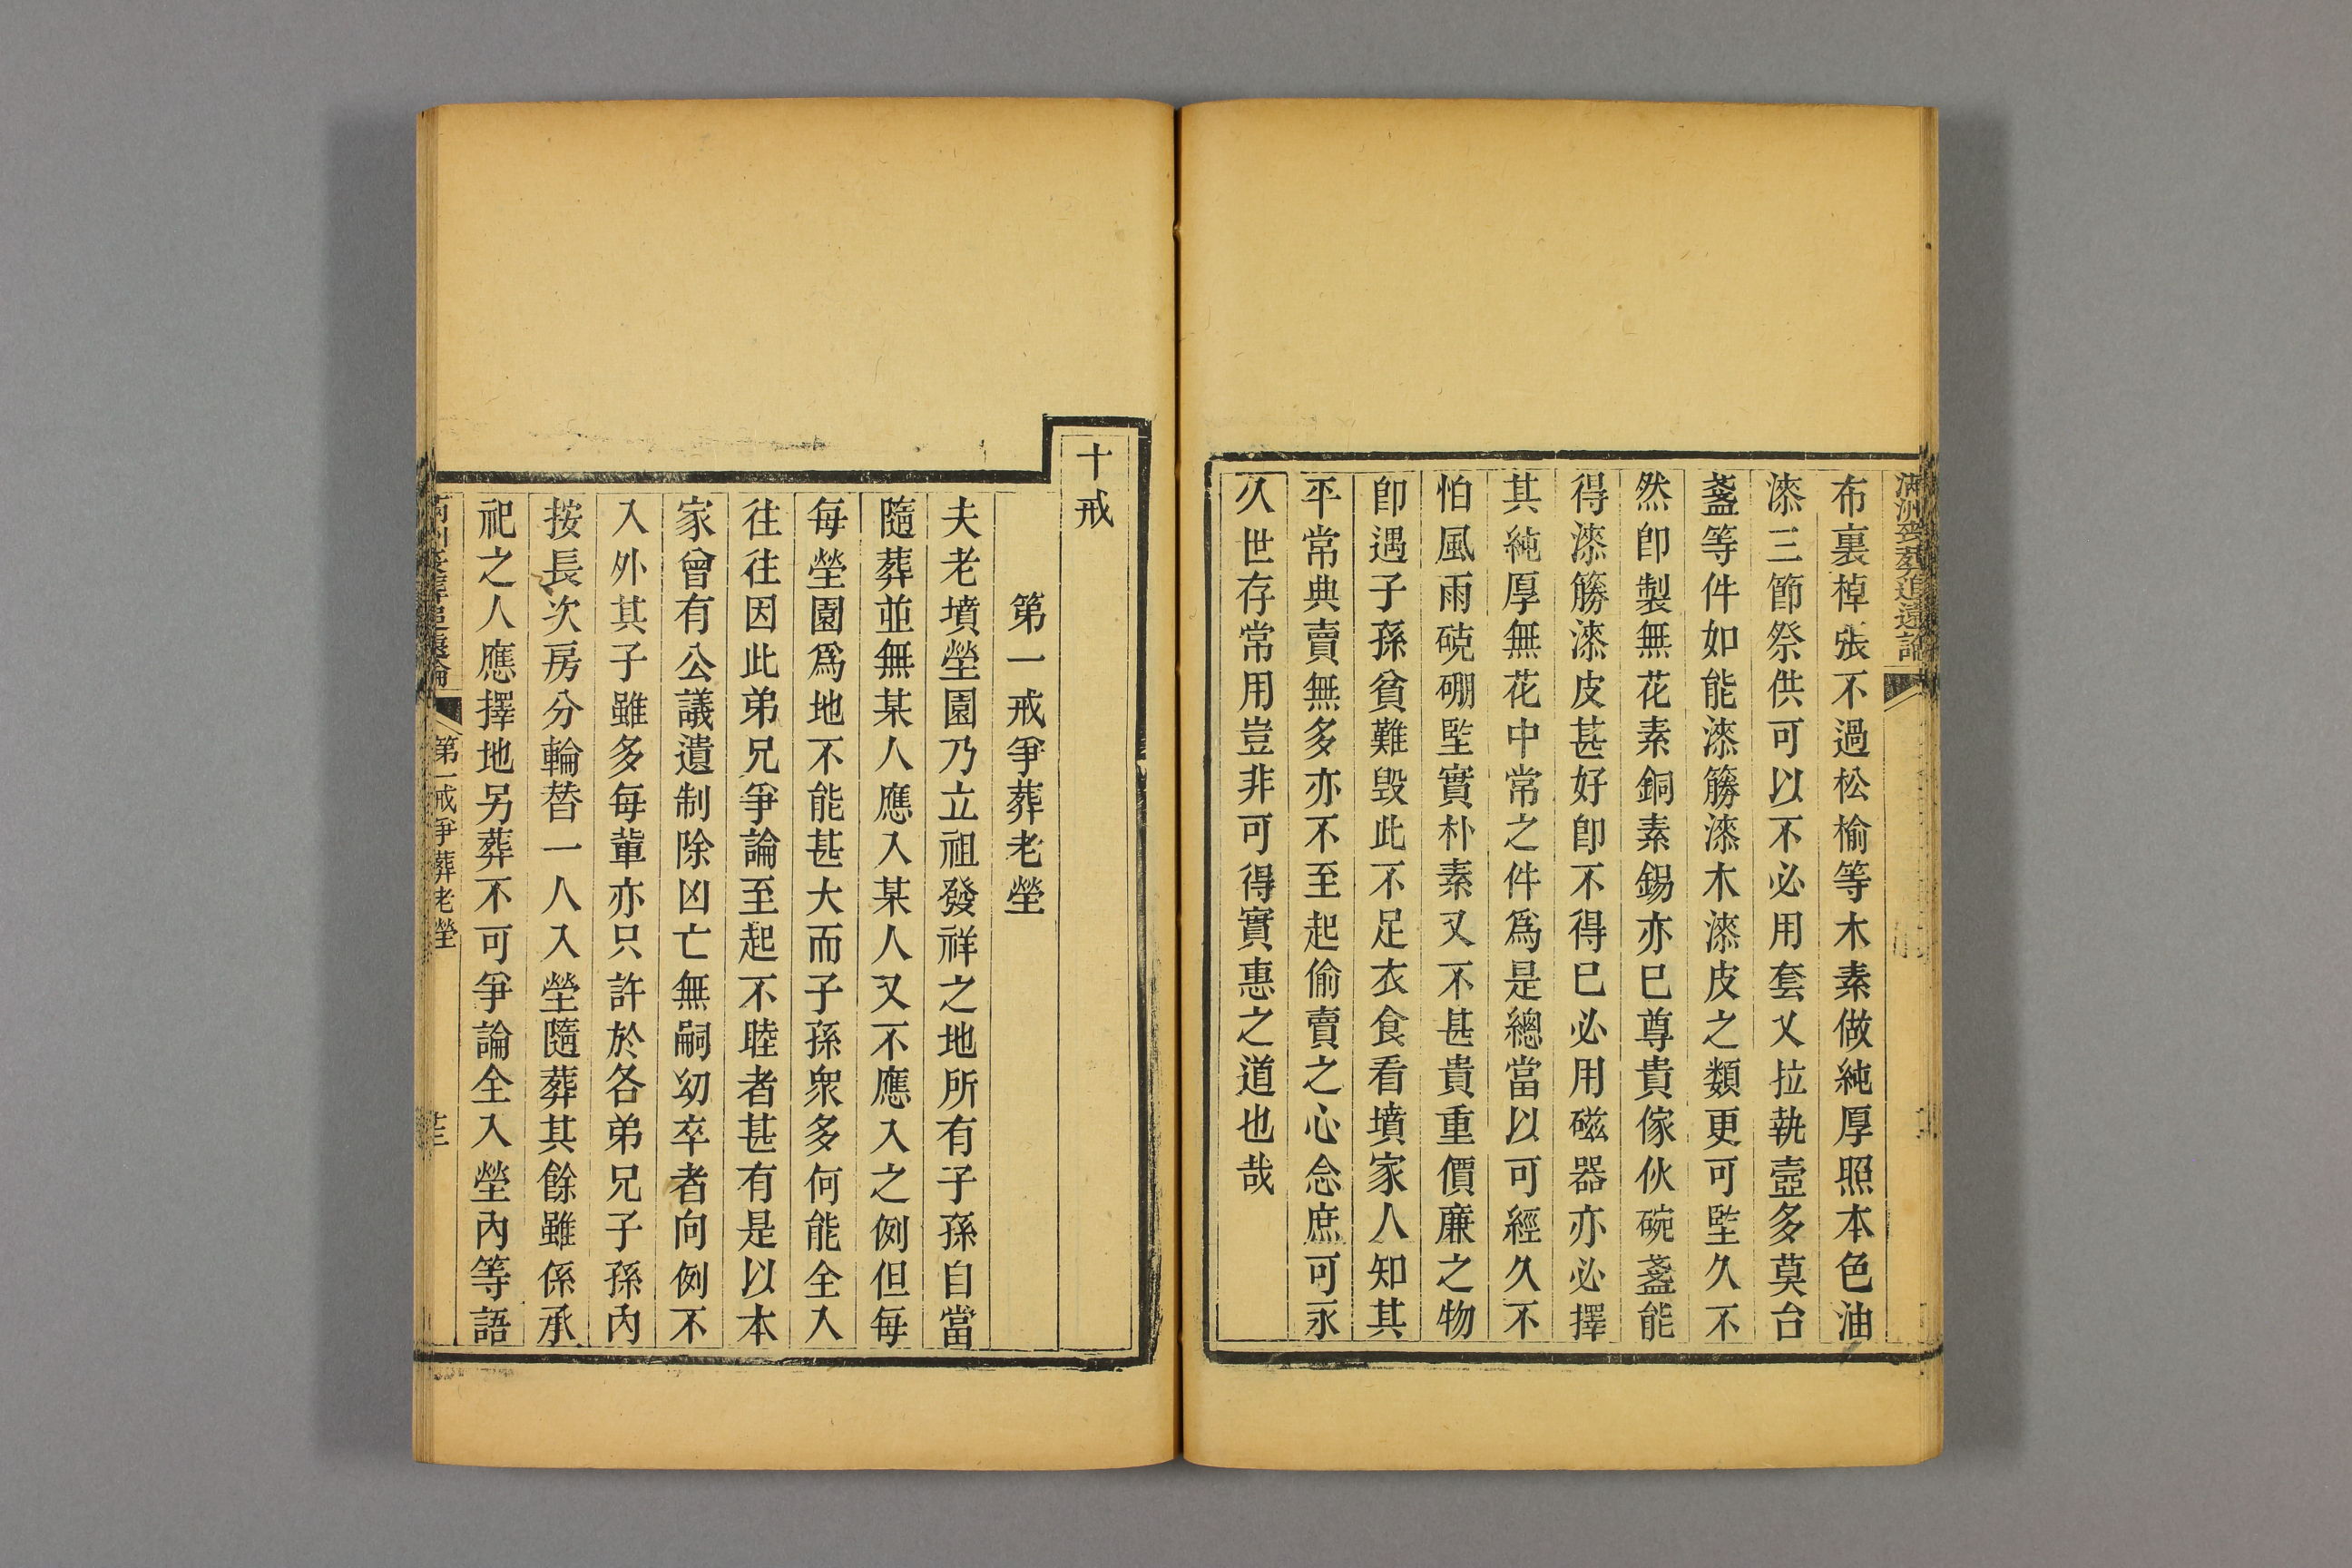 滿洲喪葬追遠論
布裏棹張不過松榆等木素做純厚照本色油
漆三節祭供可以不必用套乂拉執壺多莫台
盞等件如能漆籐漆木漆皮之類更可堅久不
然卽製無花素銅素錫亦巳尊貴傢伙碗盞能
得漆籐漆皮甚好卽不得巳必用磁器亦必擇
其純厚無花中常之件爲是總當以可經久不
怕風雨硗硼堅實朴素又不甚貴重價廉之物
卽遇子孫貧難毁此不足衣食看墳家人知其
平常典賣無多亦不至起偷賣之心念庶可永
久世存常用豈非可得實惠之道也哉
十戒
第一戒爭葬老塋
夫老墳塋園乃立祖發祥之地所有子孫自當
隨葬並無某人應入某人又不應入之例但每
每塋園爲地不能甚大而子孫衆多何能全入
往往因此弟兄爭論至起不睦者甚有是以本
家曾有公議遺制除凶亡無嗣幼卒者向例不
入外其子雖多每輩亦只許於各弟兄子孫內
按長次房分輪替一人入塋隨葬其餘雖係承
祀之人應擇地另葬不可爭論全入塋內等語
滿洲喪葬追遠論
第一戒爭葬老塋